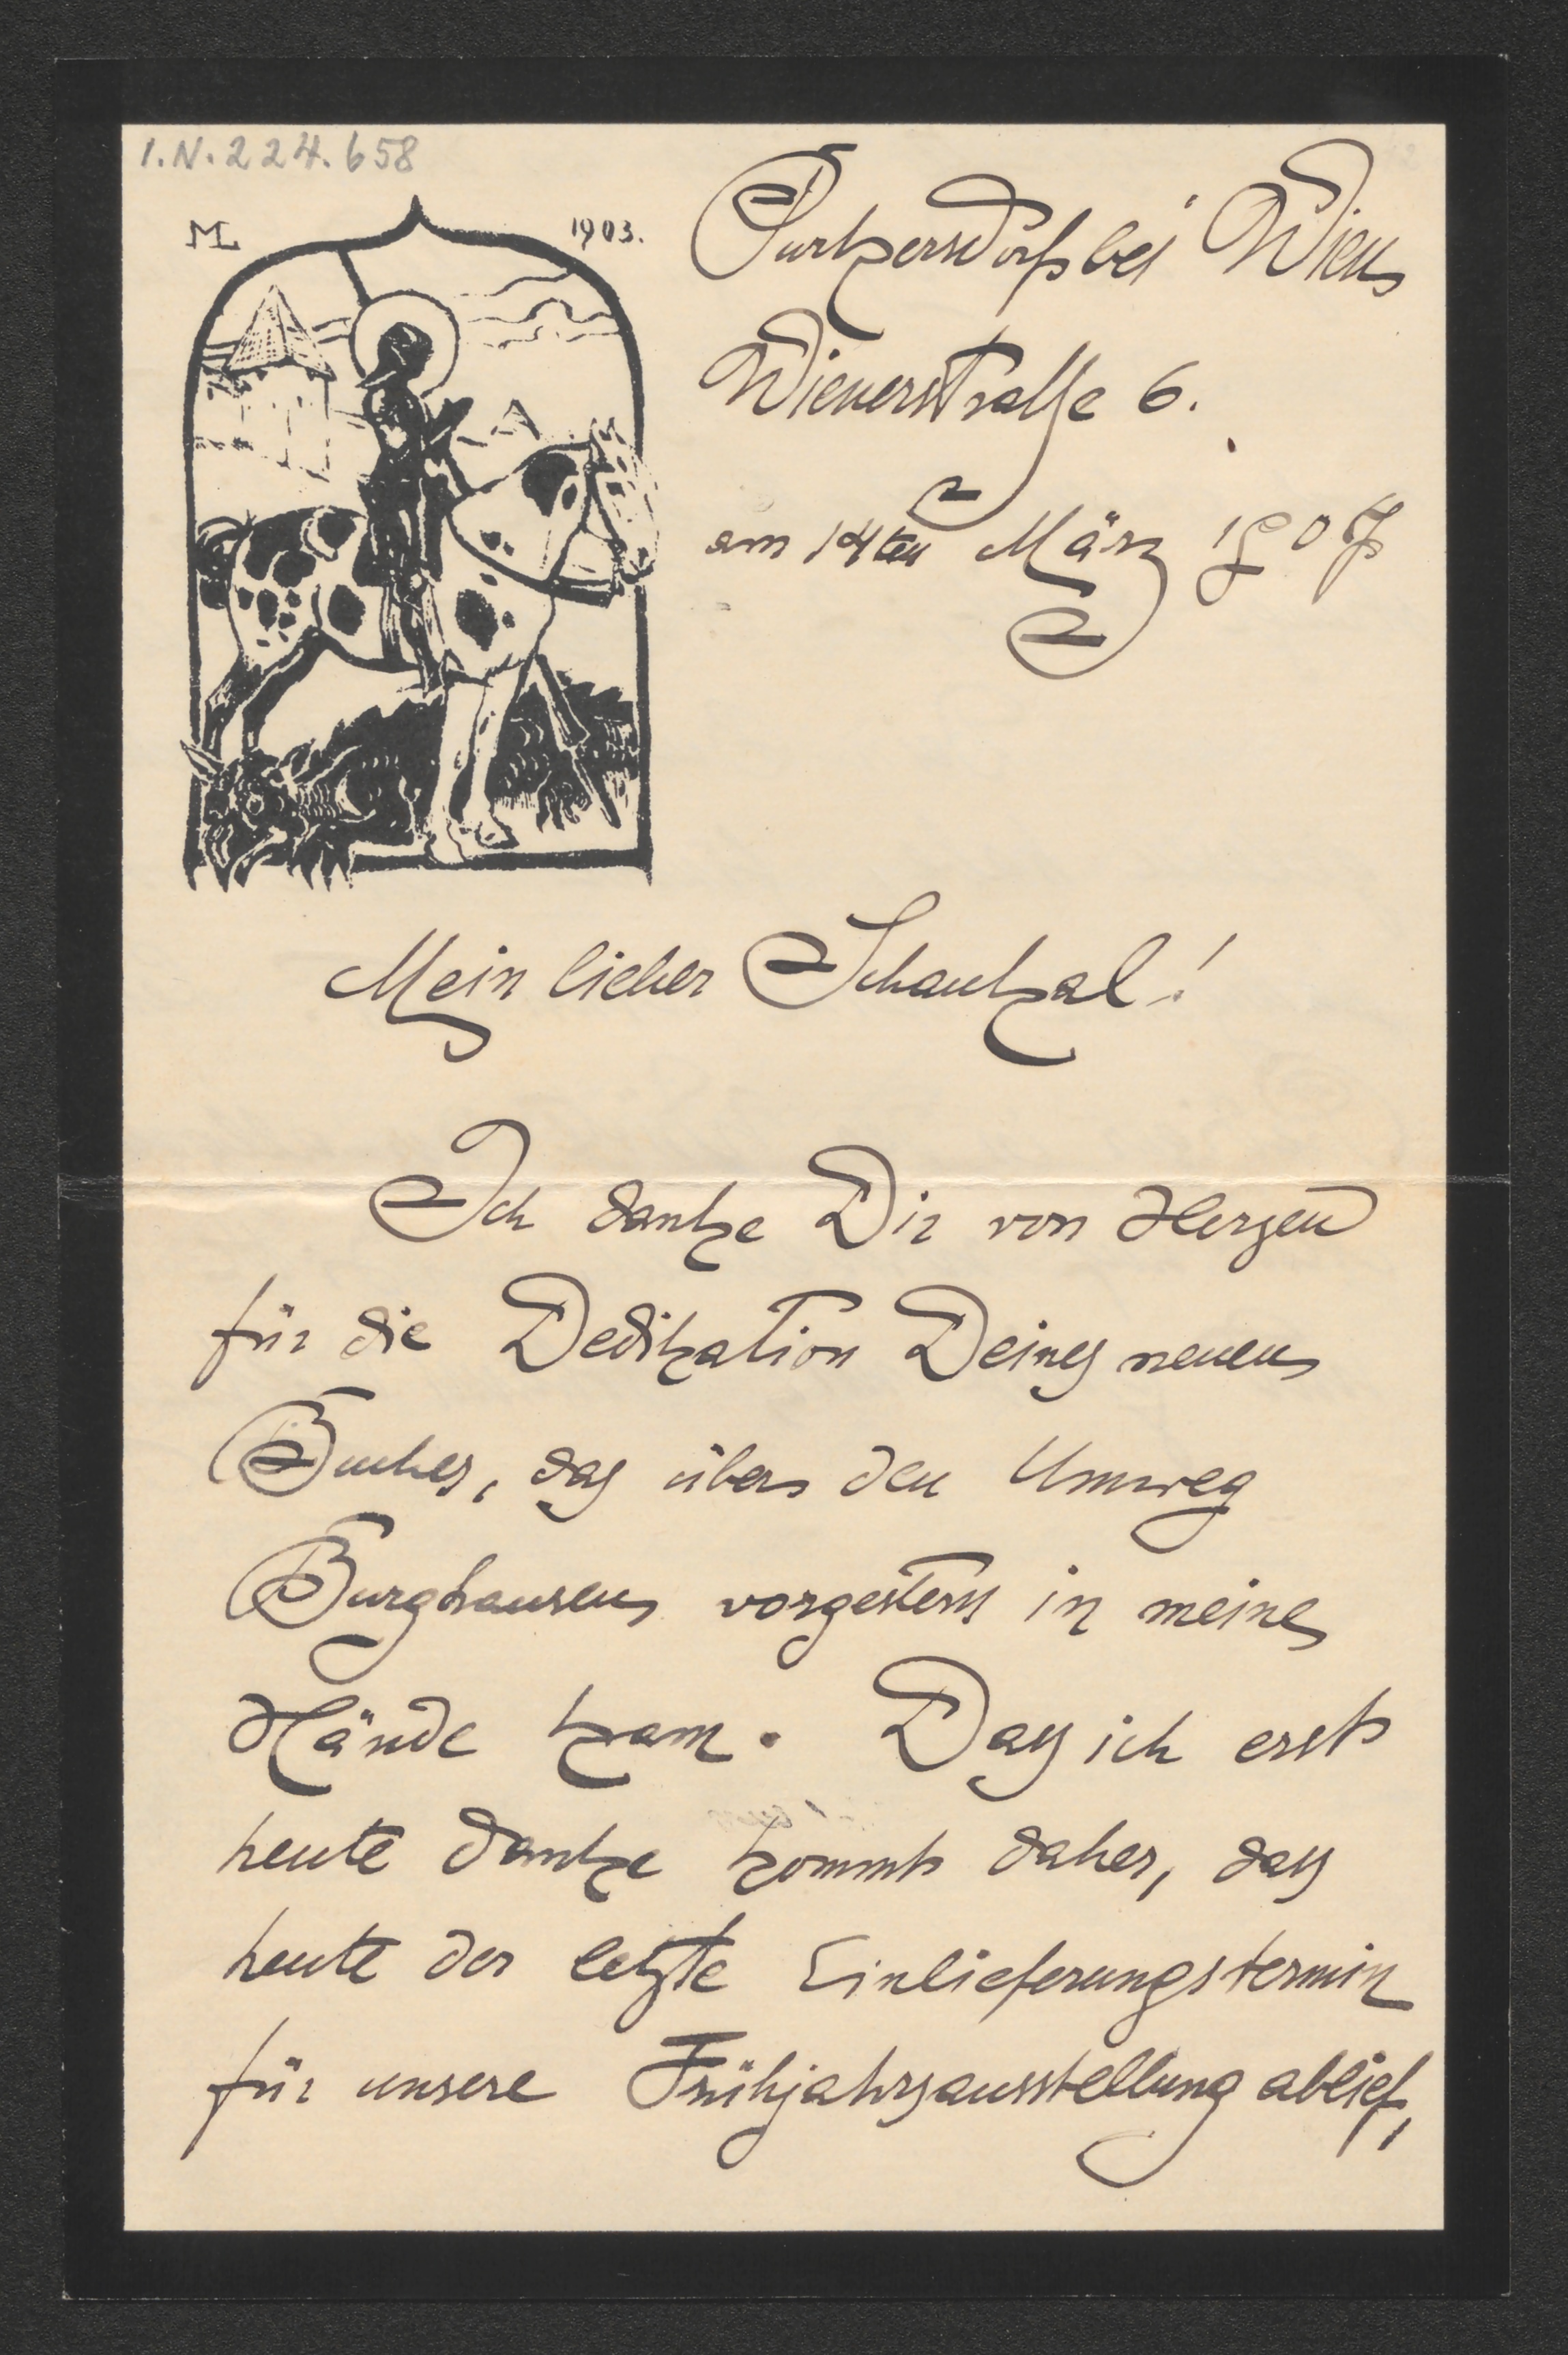 I.N.224.658
ML 1903.
Purkersdorf bei Wien
Wienerstraße 6.
am 14ten März 1907
Mein lieber Schaukal!
Ich danke Dir von Herzen
für die Dedikation Deines neuen
Buches, das über den Umweg
Burghausen vorgestern in meine
Hände kam. Daß ich erst
heute danke kommt daher, daß
heute der letzte Einlieferungstermin
für unsere Frühjahrsausstellung ablief,